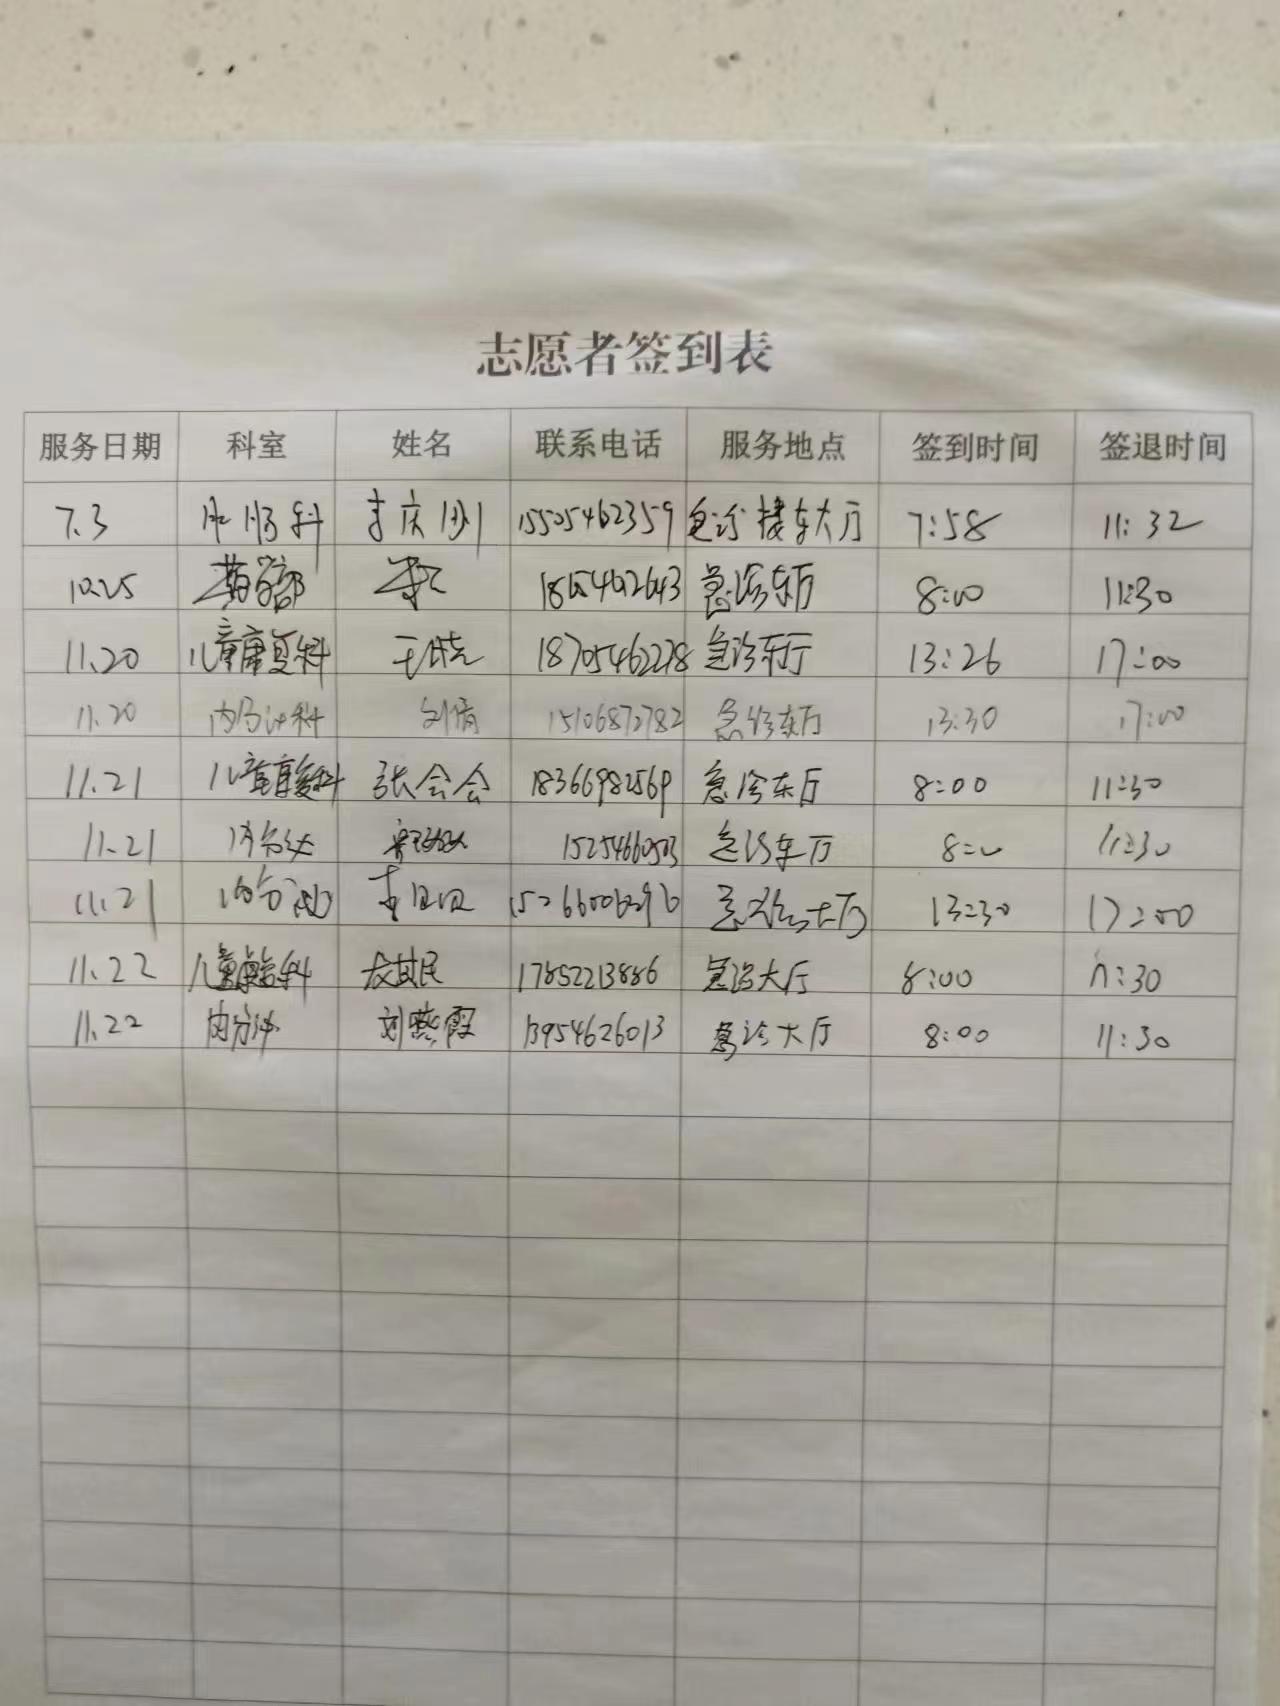 志愿者签到表
服务日期 科室 姓名 联系电话 服务地点 签到时间 签退时间
7.3 15505462359 急诊接车大厅 7:58 11:32
10.25 急诊东厅 8:00 11:30
11.20 儿童康复科 王晓 18705462278 急诊东厅 13:26 17:00
11.20 内分泌科 刘倩 15106872782 急诊东厅 13:30 17:00
11.21 儿童康复科 张会会 18366982569 急诊东厅 8:00 11:30
11.21 内分泌 急诊东厅 8:00 11:30
11.21 内分泌 急诊大厅 13:30 17:00
11.22 儿童康复科 17852213886 急诊大厅 8:00 11:30
11.22 内分泌 刘燕霞 13954626013 急诊大厅 8:00 11:30